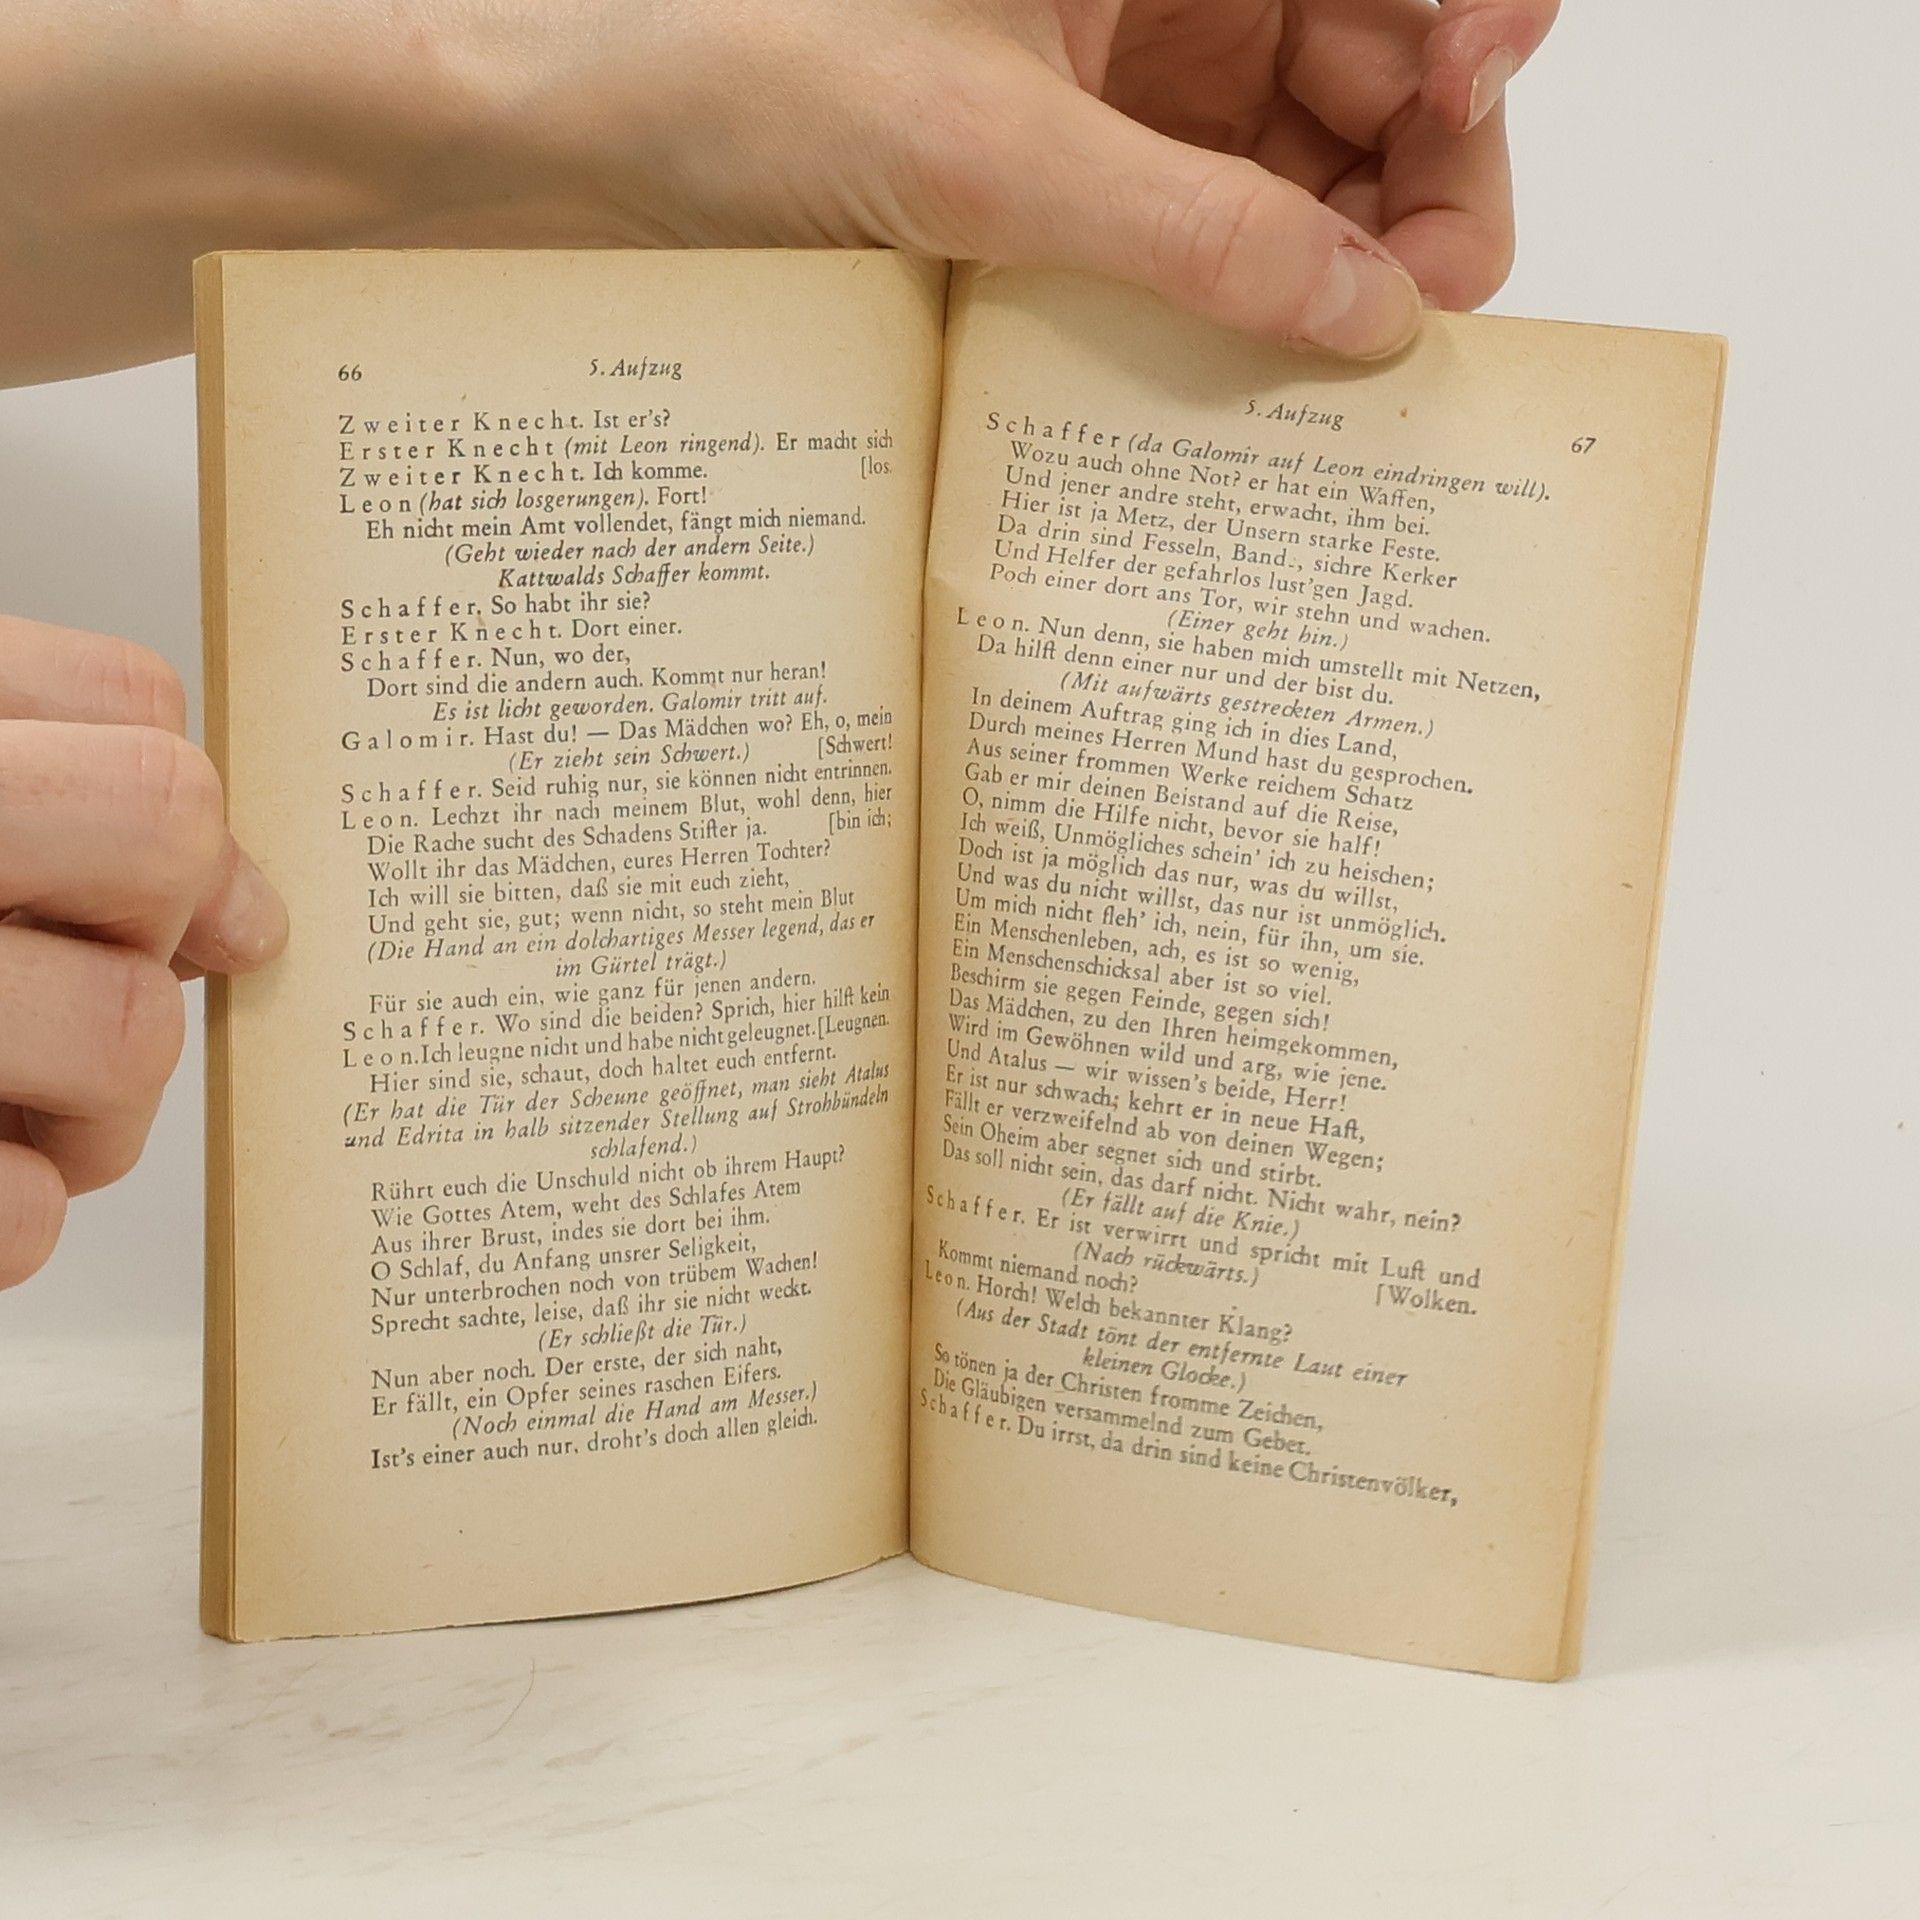 66
5. Aufzug
Zweiter Knecht. Ist er's?
Erster Knecht (mit Leon ringend). Er macht sich
Zweiter Knecht. Ich komme. [los.
Leon (hat sich losgerungen). Fort!
Eh nicht mein Amt vollendet, fängt mich niemand.
(Geht wieder nach der andern Seite.)
Kattwalds Schaffer kommt.
Schaffer. So habt ihr sie?
Erster Knecht. Dort einer.
Schaffer. Nun, wo der,
Dort sind die andern auch. Kommt nur heran!
Es ist licht geworden. Galomir tritt auf.
Galomir. Hast du! — Das Mädchen wo? Eh, o, mein
(Er zieht sein Schwert.) [Schwert!
Schaffer. Seid ruhig nur, sie können nicht entrinnen.
Leon. Lechzt ihr nach meinem Blut, wohl denn, hier
Die Rache sucht des Schadens Stifter ja. [bin ich;
Wollt ihr das Mädchen, eures Herren Tochter?
Ich will sie bitten, daß sie mit euch zieht,
Und geht sie, gut; wenn nicht, so steht mein Blut
(Die Hand an ein dolchartiges Messer legend, das er
im Gürtel trägt.)
Für sie auch ein, wie ganz für jenen andern.
Schaffer. Wo sind die beiden? Sprich, hier hilft kein
Leon. Ich leugne nicht und habe nicht geleugnet. [Leugnen.
Hier sind sie, schaut, doch haltet euch entfernt.
(Er hat die Tür der Scheune geöffnet, man sieht Atalus
und Edrita in halb sitzender Stellung auf Strohbündeln
schlafend.)
Rührt euch die Unschuld nicht ob ihrem Haupt?
Wie Gottes Atem, weht des Schlafes Atem
Aus ihrer Brust, indes sie dort bei ihm.
O Schlaf, du Anfang unsrer Seligkeit,
Nur unterbrochen noch von trübem Wachen!
Sprecht sachte, leise, daß ihr sie nicht weckt.
(Er schließt die Tür.)
Nun aber noch. Der erste, der sich naht,
Er fällt, ein Opfer seines raschen Eifers.
(Noch einmal die Hand am Messer.)
Ist's einer auch nur, droht's doch allen gleich.
5. Aufzug
67
Schaffer (da Galomir auf Leon eindringen will).
Wozu auch ohne Not? er hat ein Waffen,
Und jener andre steht, erwacht, ihm bei.
Hier ist ja Metz, der Unsern starke Feste.
Da drin sind Fesseln, Band, sichre Kerker
Und Helfer der gefahrlos lust'gen Jagd.
Poch einer dort ans Tor, wir stehn und wachen.
(Einer geht hin.)
Leon. Nun denn, sie haben mich umstellt mit Netzen,
Da hilft denn einer nur und der bist du.
(Mit aufwärts gestreckten Armen.)
In deinem Auftrag ging ich in dies Land,
Durch meines Herren Mund hast du gesprochen.
Aus seiner frommen Werke reichem Schatz
Gab er mir deinen Beistand auf die Reise,
O, nimm die Hilfe nicht, bevor sie half!
Ich weiß, Unmögliches schein' ich zu heischen;
Doch ist ja möglich das nur, was du willst,
Und was du nicht willst, das nur ist unmöglich.
Um mich nicht fleh' ich, nein, für ihn, um sie.
Ein Menschenleben, ach, es ist so wenig,
Ein Menschenschicksal aber ist so viel.
Beschirm sie gegen Feinde, gegen sich!
Das Mädchen, zu den Ihren heimgekommen,
Wird im Gewöhnen wild und arg, wie jene.
Und Atalus — wir wissen's beide, Herr!
Er ist nur schwach; kehrt er in neue Haft,
Fällt er verzweifelnd ab von deinen Wegen;
Sein Oheim aber segnet sich und stirbt.
Das soll nicht sein, das darf nicht. Nicht wahr, nein?
(Er fällt auf die Knie.)
Schaffer. Er ist verwirrt und spricht mit Luft und
(Nach rückwärts.) [Wolken.
Kommt niemand noch?
Leon. Horch! Welch bekannter Klang?
(Aus der Stadt tönt der entfernte Laut einer
kleinen Glocke.)
So tönen ja der Christen fromme Zeichen,
Die Gläubigen versammelnd zum Gebet.
Schaffer. Du irrst, da drin sind keine Christenvölker,